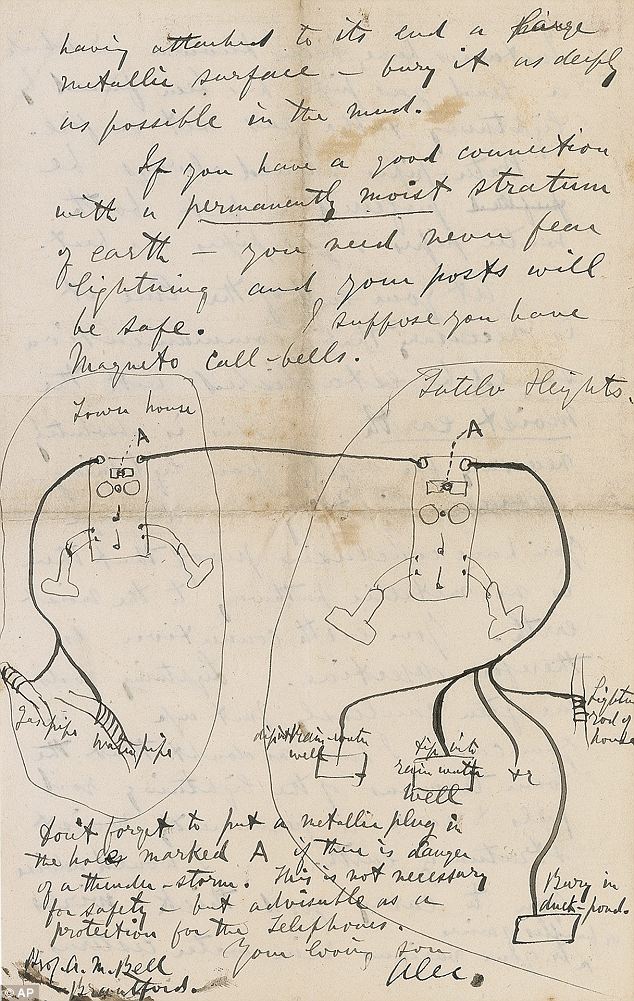 having attached to its end a large
metallic surface — bury it as deeply
as possible in the mud.
If you have a good connection
with a permanently moist stratum
of earth — you need never fear
lightning and your posts will
be safe. I suppose you have
Magneto call-bells.
Town house
Tutelo Heights.
A
A
Gas pipe
Water pipe
rain-water
well
dip into
rain water
well
Lightn
rod of
house
Bury in
duck-pond.
Don't forget to put a metallic plug in
the holes marked A if there is danger
of a thunder-storm. This is not necessary
for safety — but advisable as a
protection for the Telephones.
Your loving son
Alec.
Prof. A. M. Bell
Brantford.
© AP